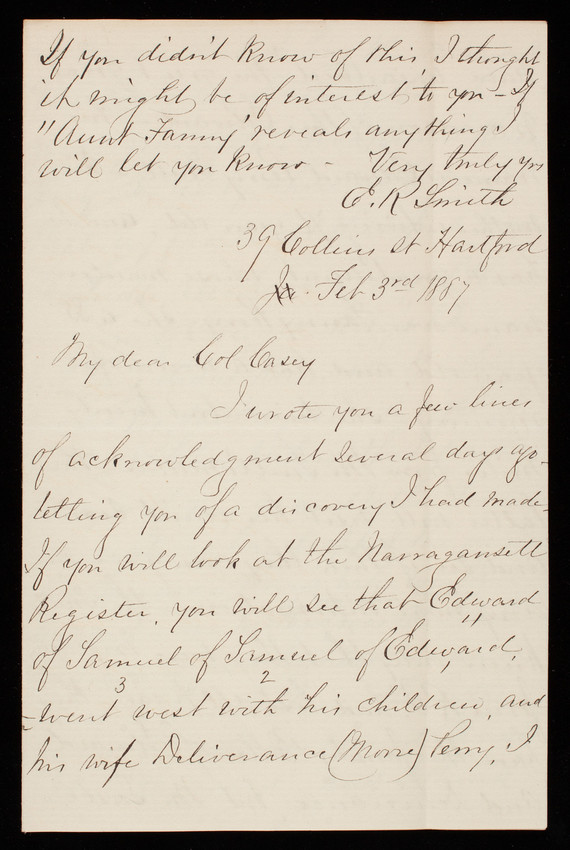 If you didn't know of this, I thought
it might be of interest to you - If
"Aunt Fanny" reveals anything I
will let you know - Very truly yrs
E. R Smith
39 Collins st Hartford
Ja. Feb 3rd 1887
My dear Col Casey
I wrote you a few lines
of acknowledgment several days ago -
telling you of a discovery I had made -
If you will look at the Narragansett
Register, you will see that Edward
of Samuel of Samuel of Edward,
3 2 1
- went west with his children, and
his wife Deliverance (Morse) Perry, I